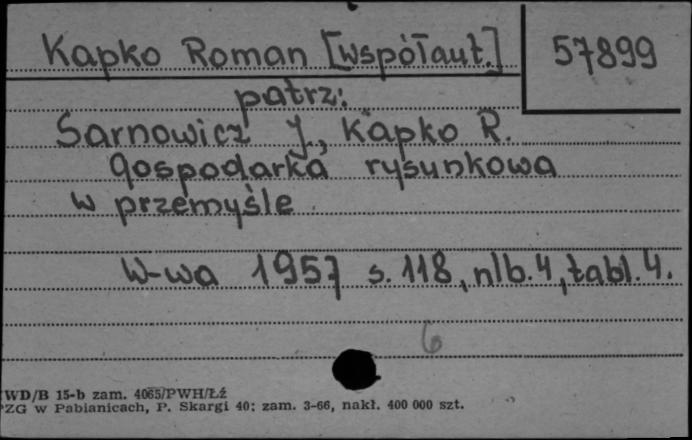 Kapko Roman [współaut.] 57899
patrz:
Sarnowicz J., Kapko R.
Gospodarka rysunkowa
w przemyśle
W-wa 1957 s. 118, nlb. 4, tabl. 4.
6
WD/B 15-b zam. 4065/PWH/Łź
PZG w Pabianicach, P. Skargi 40; zam. 3-66, nakł. 400 000 szt.